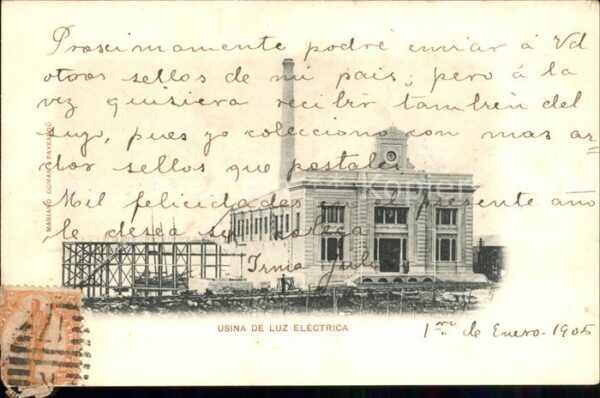 Proscimamente podré enviar á Vd
otros sellos de mi pais; pero á la
vez quisiera recibir tambien del
suyo, pues yo colecciono con mas ar-
dor sellos que postales.
Mil felicidades en el presente año
le desea su colega
Irma
MARIANO COMAS PAYSANDÚ
USINA DE LUZ ELÉCTRICA
1ro de Enero-1905